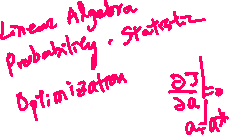 Linear Algebra
Probability, Statistic
Optimization
∂J/∂a |a=a* = 0